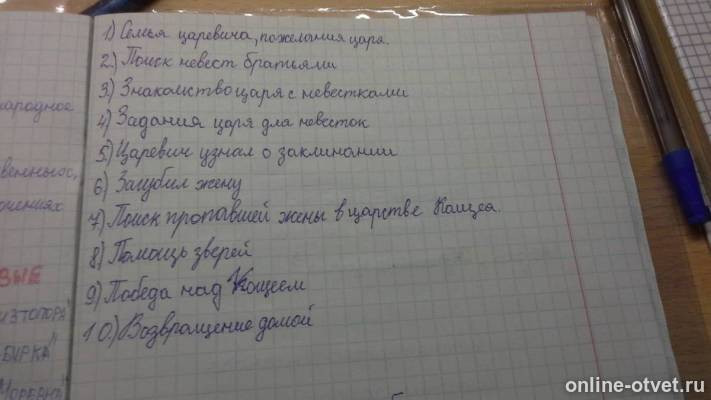 1) Семья царевича, пожелания царя.
2) Поиск невест братьями
3) Знакомство царя с невестками
4) Задания царя для невесток
5) Царевич узнал о заклинании
6) Загубил жену
7) Поиск пропавшей жены в царстве Кощея.
8) Помощь зверей
9) Победа над Кощеем
10) Возвращение домой
ародное
венныос,
ошениях
ВЫЕ
ИЗ ТОПОРА"
БУРКА"
online-otvet.ru